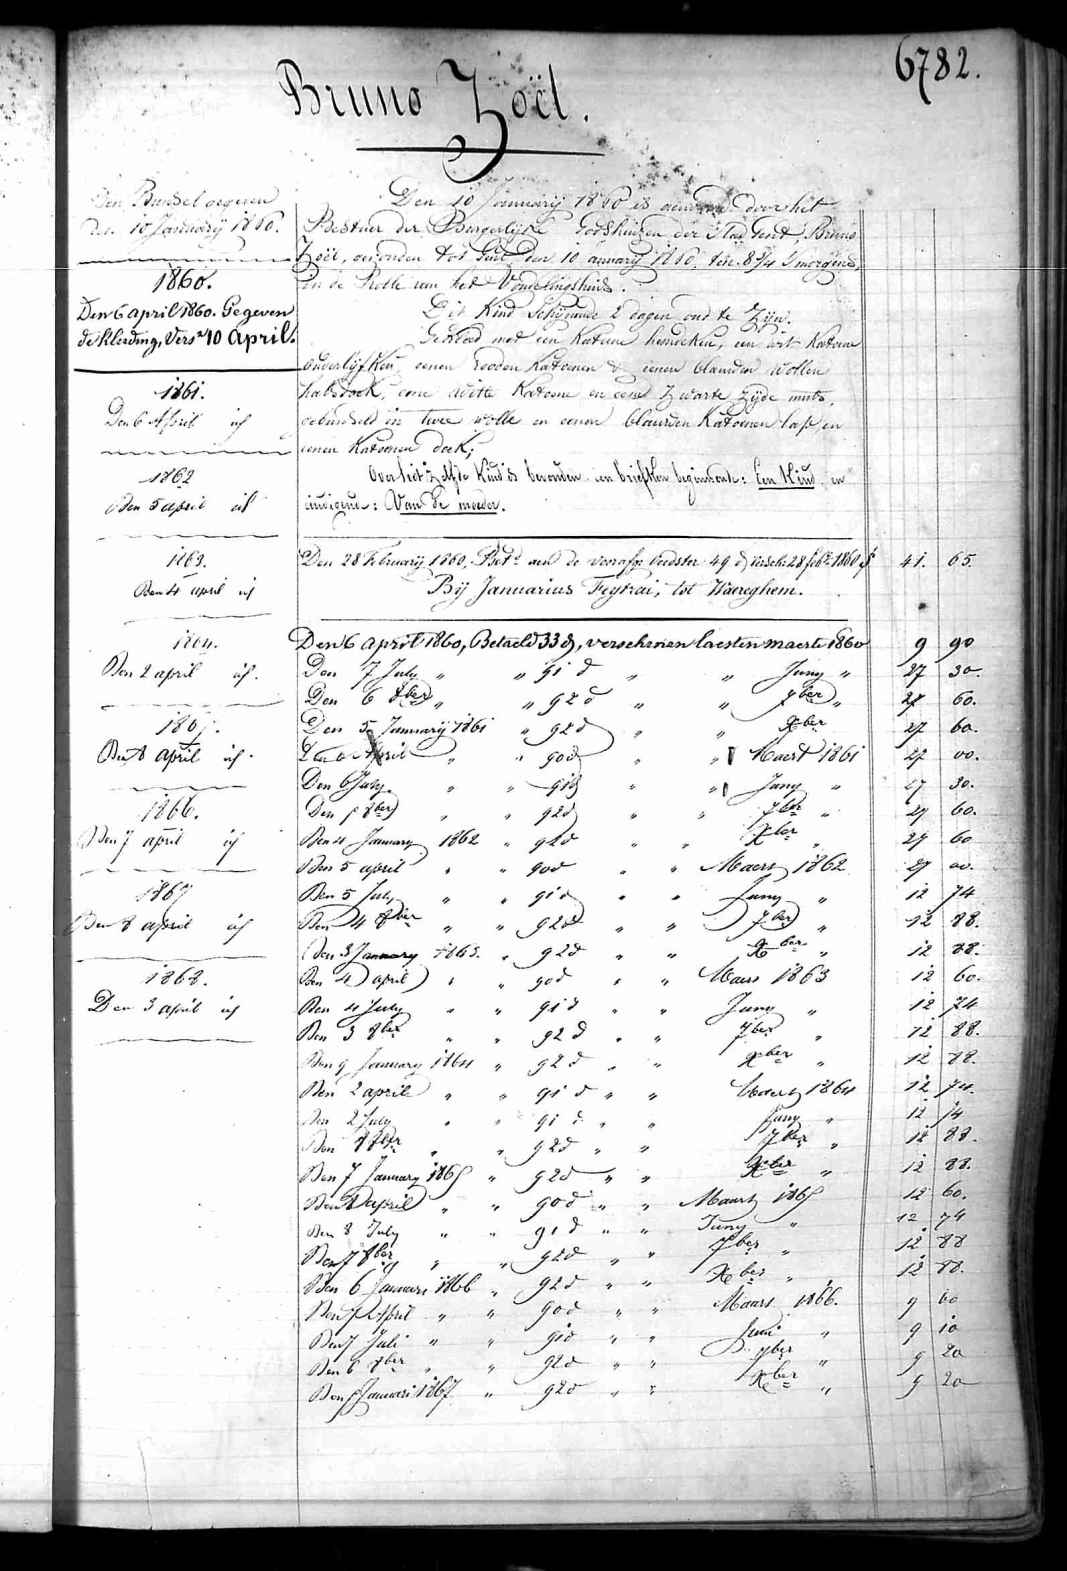 6782.
Bruno Zoël.
Den Bundel gegeven
den 10 January 1860.
1860.
Den 6 april 1860. Gegeven
de kleeding, Vers n 10 April.
1861.
Den 6 April id
1862
Den 5 april id
1863.
Den 4 april id
1864.
Den 2 april id.
1865.
Den 8 april id.
1866.
Den 7 april id
1867
Den 8 april id
1868.
Den 3 april id
Den 10 Januarij 1860 is door het
Bestuer der Burgerlyke Godshuizen der Stad Gent, Bruno
Zoël, gevonden tot Gent den 10 january 1860, ten 8 3/4 's morgens,
in de Rolle van het Vondelingshuis.
Dit Kind Schynende 2 dagen oud te Zyn.
Gekleed met een Katoene hemdeken, een wit Katoene
onderlyfken, eenen rooden Katoenen & eenen blauwen wollen
halsdoek, eene witte Katoene en eene Zwarte Zyde muts,
gebundeld in twee wolle en eenen blauwen Katoenen lap, en
eenen Katoenen doek;
Over het Zelfde Kind is bevonden een briefken beginnende: Een Kind, en
eindigende: Van de moeder.
Den 28 February 1860, Bet d aen de voedster 49 d versch: 28 feb: 1860 41. 65.
By Januarius Feytrai, tot Waereghem.
Den 6 april 1860, Betaeld 33 d, verschenen laesten maerte 1860 9 90
Den 7 July " " 91 d " " Juny " 27 30.
Den 6 8ber " " 92 d " " 7ber " 27 60.
Den 5 January 1861 " 92 d " " Xber 27 60.
Den 6 April " " 90 d " " Maert 1861 27 00.
Den 6 July. " " 91 d " " Juny " 27 30.
Den 5 8ber " " 92 d " " 7ber " 27 60.
Den 4 January 1862 " 92 d " " Xber " 27 60
Den 5 april " " 90 d " " Maert 1862 27 00.
Den 5 July " " 91 d " " Juny " 12 74
Den 4 8ber " " 92 d " " 7ber " 12 88.
Den 3 January 1863. " 92 d " " Xber " 12 88.
Den 4 april " " 90 d " " Maers 1863 12 60.
Den 4 July " " 91 d " " Juny " 12 74
Den 3 8ber " " 92 d " " 7ber " 12 88.
Den 9 January 1864 " 92 d " " Xber " 12 88.
Den 2 april " " 91 d " " Maert 1864 12 74.
Den 2 July " " 91 d " " Juny " 12 74
Den 8ber " " 92 d " " 7ber " 12 88.
Den 7 January 1865 " 92 d " " Xber " 12 88.
Den 8 april " " 90 d " " Maart 1865 12 60.
Den 8 July " " 91 d " " Juny " 12 74
Den 7 8ber " " 92 d " " 7ber " 12 88
Den 6 Januari 1866 " 92 d " " Xber " 12 88.
Den 7 April " " 90 d " " Maars 1866. 9 00
Den 7 Juli " " 91 d " " Juni " 9 10
Den 6 8ber " " 92 d " " 7ber " 9 20
Den 5 Januari 1867 " 92 d " " Xber " 9 20